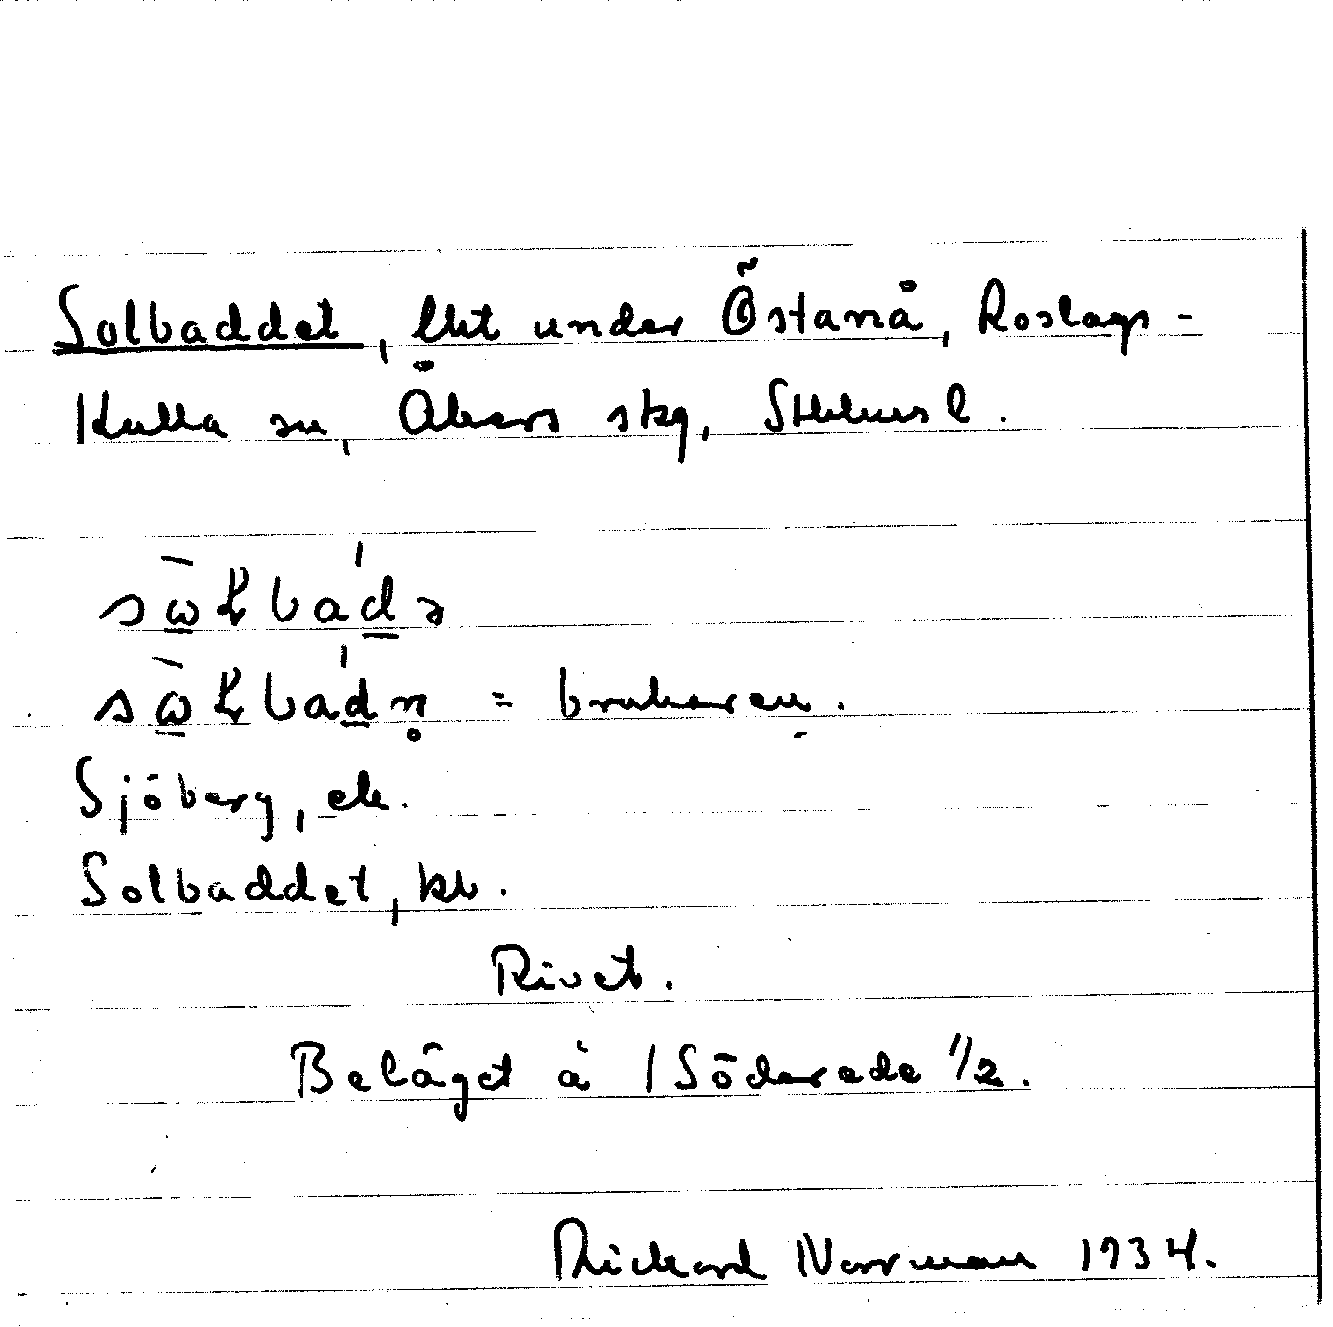 Solbaddet, lht under Östanå, Roslags-
Kulla sn, Åkers skg, Sthlms l.
sὼ̱ɫbád̲ə
sὼ̱ɫbád̲n̥ = brukaren.
Sjöberg, ek.
Solbaddet, kb.
Rivet.
Beläget å 1 Söderede 1/2.
Rickard Norrman 1934.